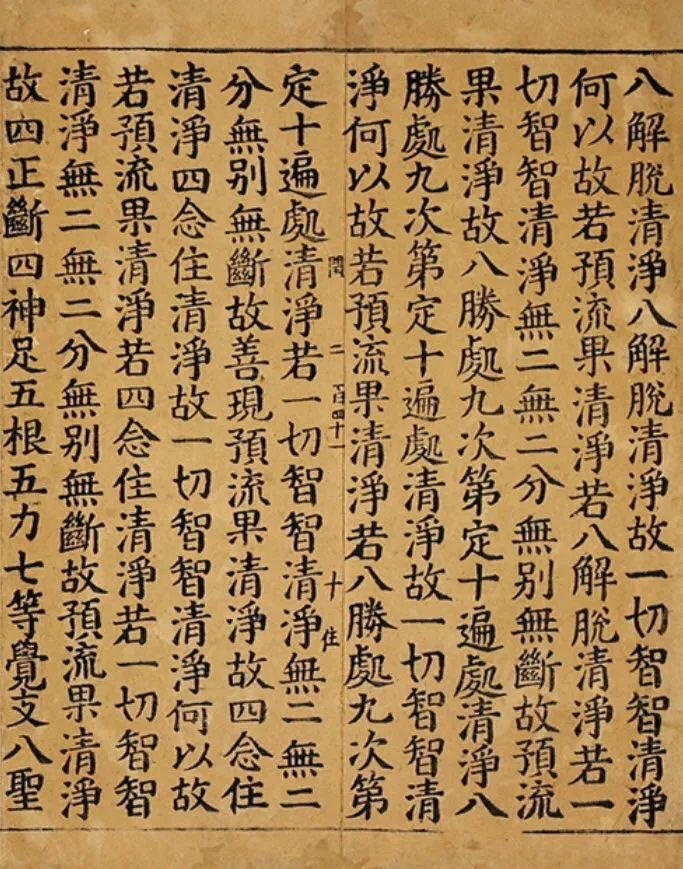 八解脫清淨八解脫清淨故一切智智清淨
何以故若預流果清淨若八解脫清淨若一
切智智清淨無二無二分無別無斷故預流
果清淨故八勝處九次第定十遍處清淨八
勝處九次第定十遍處清淨故一切智智清
淨何以故若預流果清淨若八勝處九次第
二百四十一 十 住
定十遍處清淨若一切智智清淨無二無二
分無別無斷故善現預流果清淨故四念住
清淨四念住清淨故一切智智清淨何以故
若預流果清淨若四念住清淨若一切智智
清淨無二無二分無別無斷故預流果清淨
故四正斷四神足五根五力七等覺支八聖